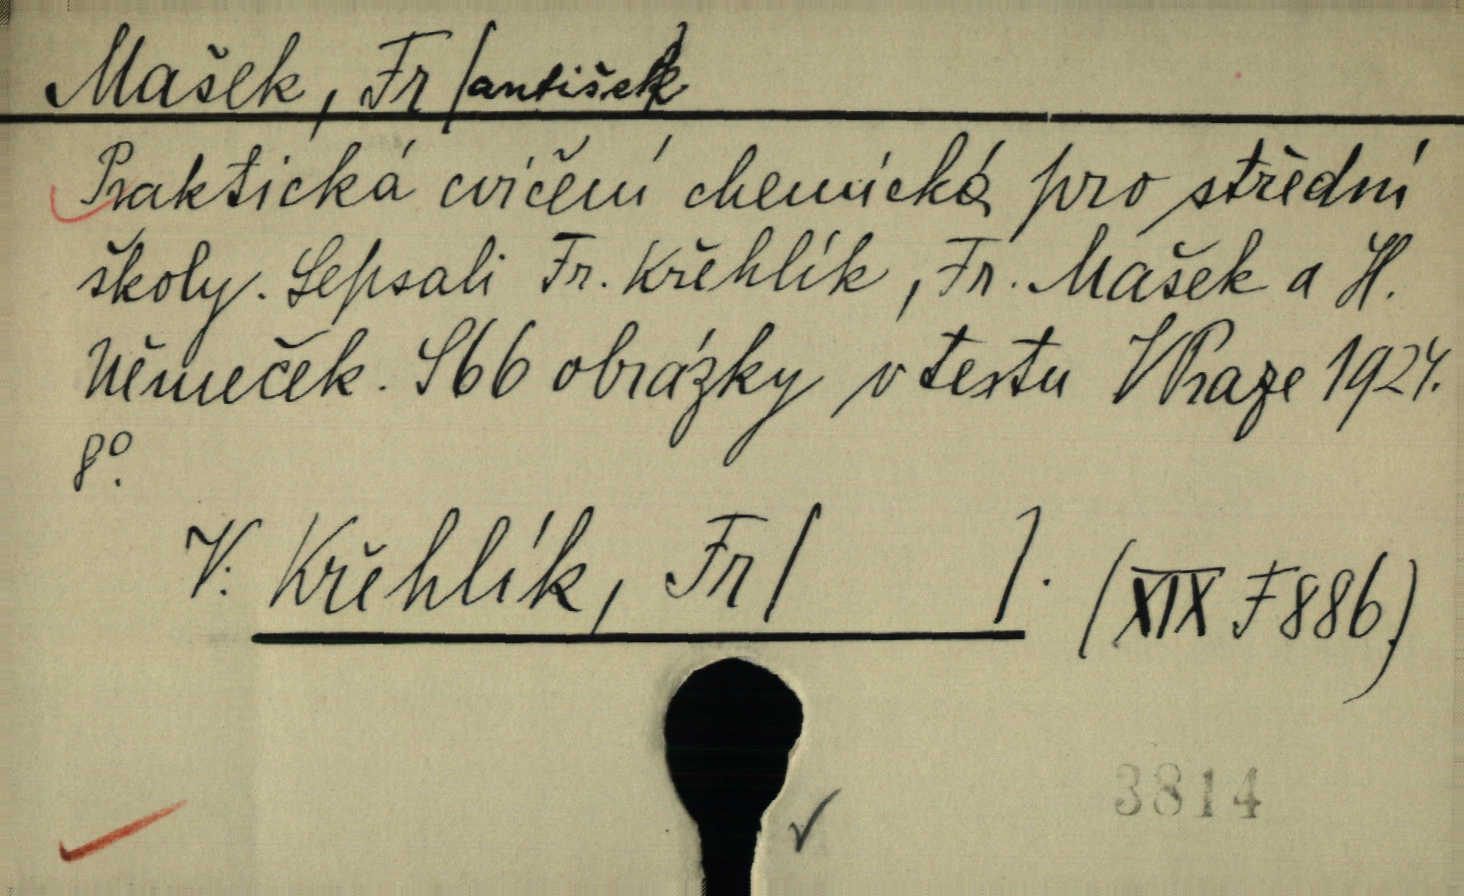 Mašek, Fr[antišek]
Praktická cvičení chemická pro střední
školy. Sepsali Fr. Křehlík, Fr. Mašek a H.
Němeček. S 66 obrázky v textu V Praze 1924.
8°.
V: Křehlík, Fr[ ]. (XIX F 886)
3814